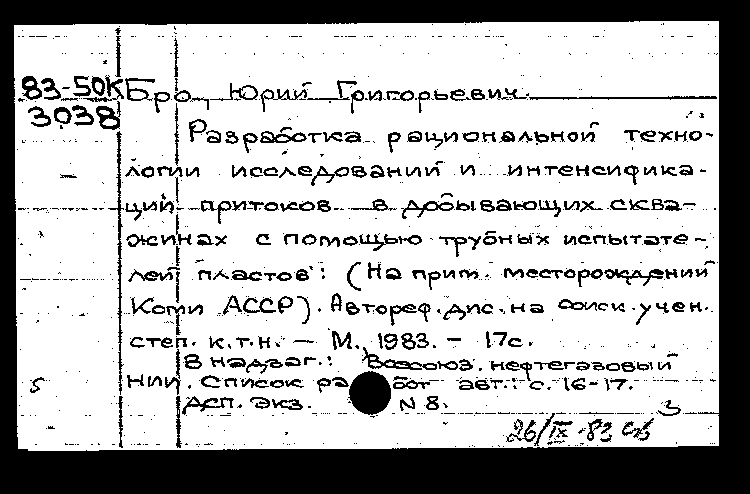 83-50К Бро, Юрий Григорьевич.
3038
Разработка рациональной техно-
логии исследований и интенсифика-
ций притоков в добывающих сква-
жинах с помощью трубных испытате-
лей пластов: (На прим. месторождений
Коми АССР). Автореф. дис. на соиск. учен.
степ. к.т.н. – М., 1983. – 17с.
В надзаг.: Всесоюз. нефтегазовый
НИИ. Список работ авт.: с. 16-17.
Деп. экз. N 8.
5
3
26/IX-83